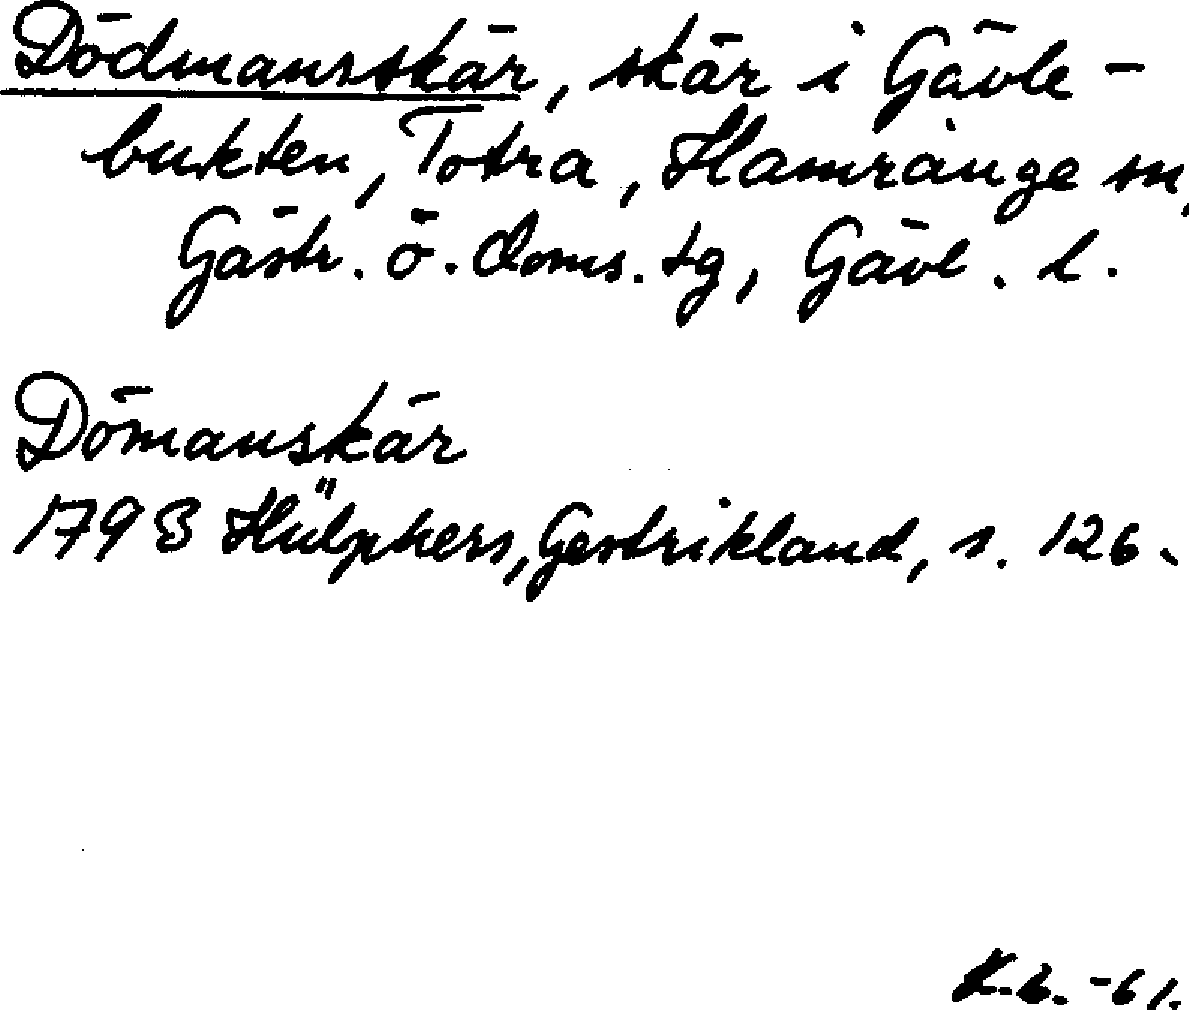 Dödmansskär, skär i Gävle-
bukten, Totra, Hamrånge sn,
Gästr. ö. doms. tg, Gävl. l.
Dömanskär
1793 Hülphers, Gestrikland, s. 126.
K.b. -61.